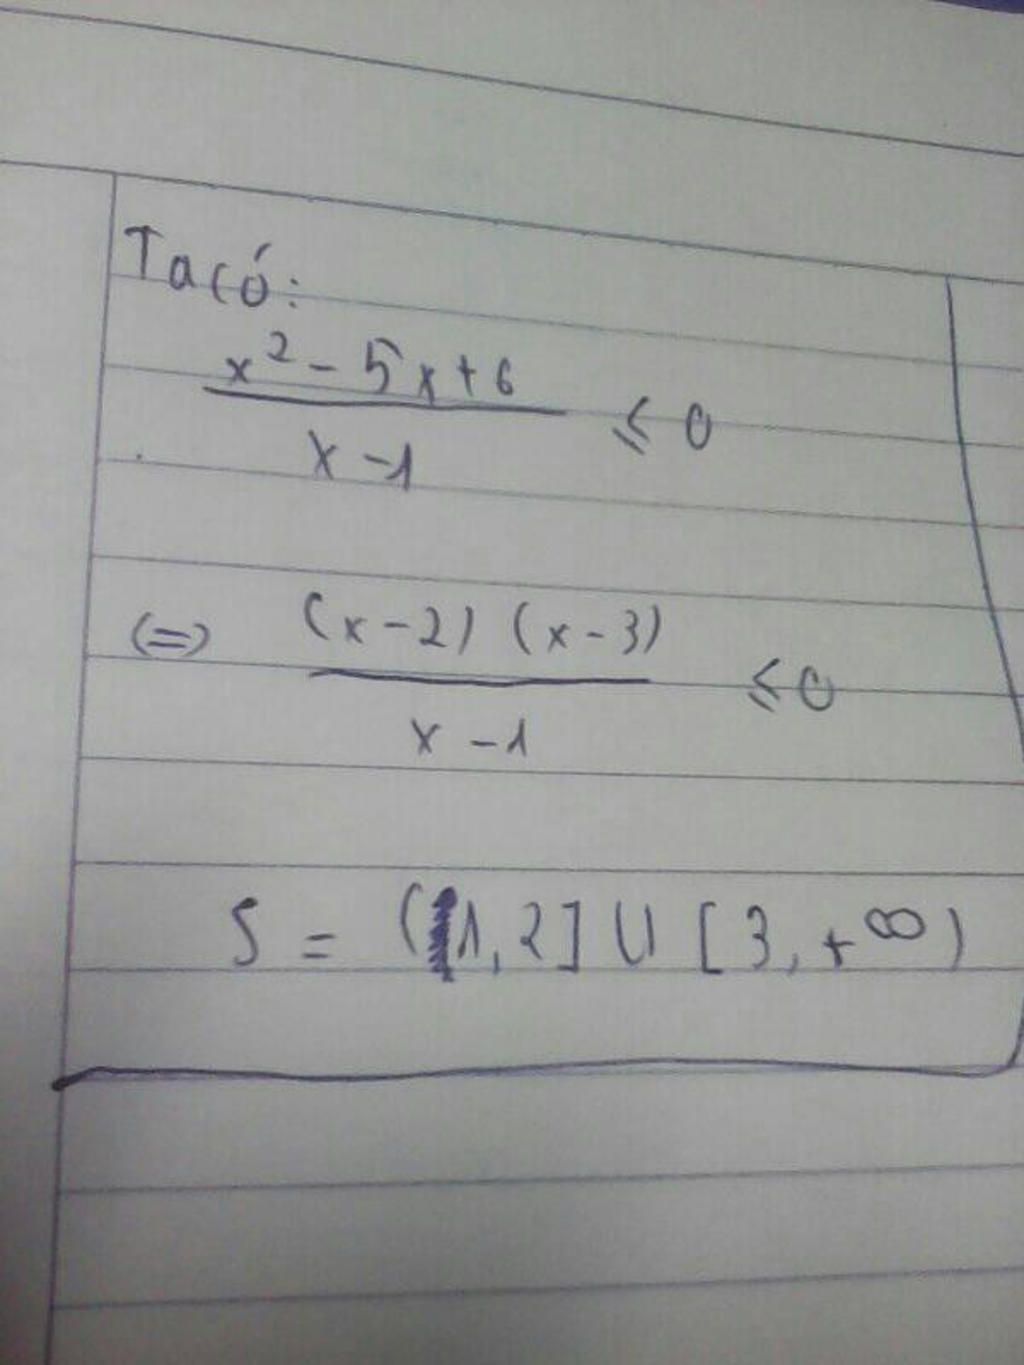 Ta có:
x² - 5x + 6
x - 1
≤ 0
(=) (x - 2) (x - 3)
x - 1
≤ 0
S = (1, 2] U [3, +∞)